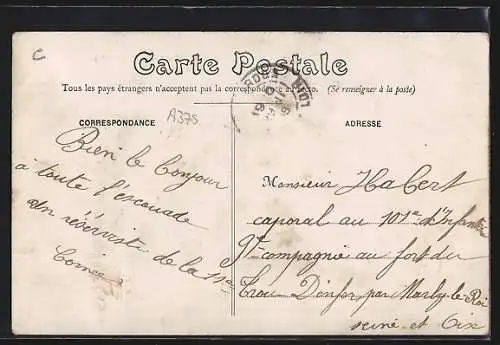 C
Carte Postale
Tous les pays étrangers n'acceptent pas la correspondance au recto. (Se renseigner à la poste)
CORRESPONDANCE
A375
Bien le bonjour
à toute l'escouade
un réserviste de la 11e
ADRESSE
Monsieur Habert
caporal au 101e d'Infanterie
9e compagnie au fort du
Trou D'enfer par Marly-le-Roi
seine et Oise